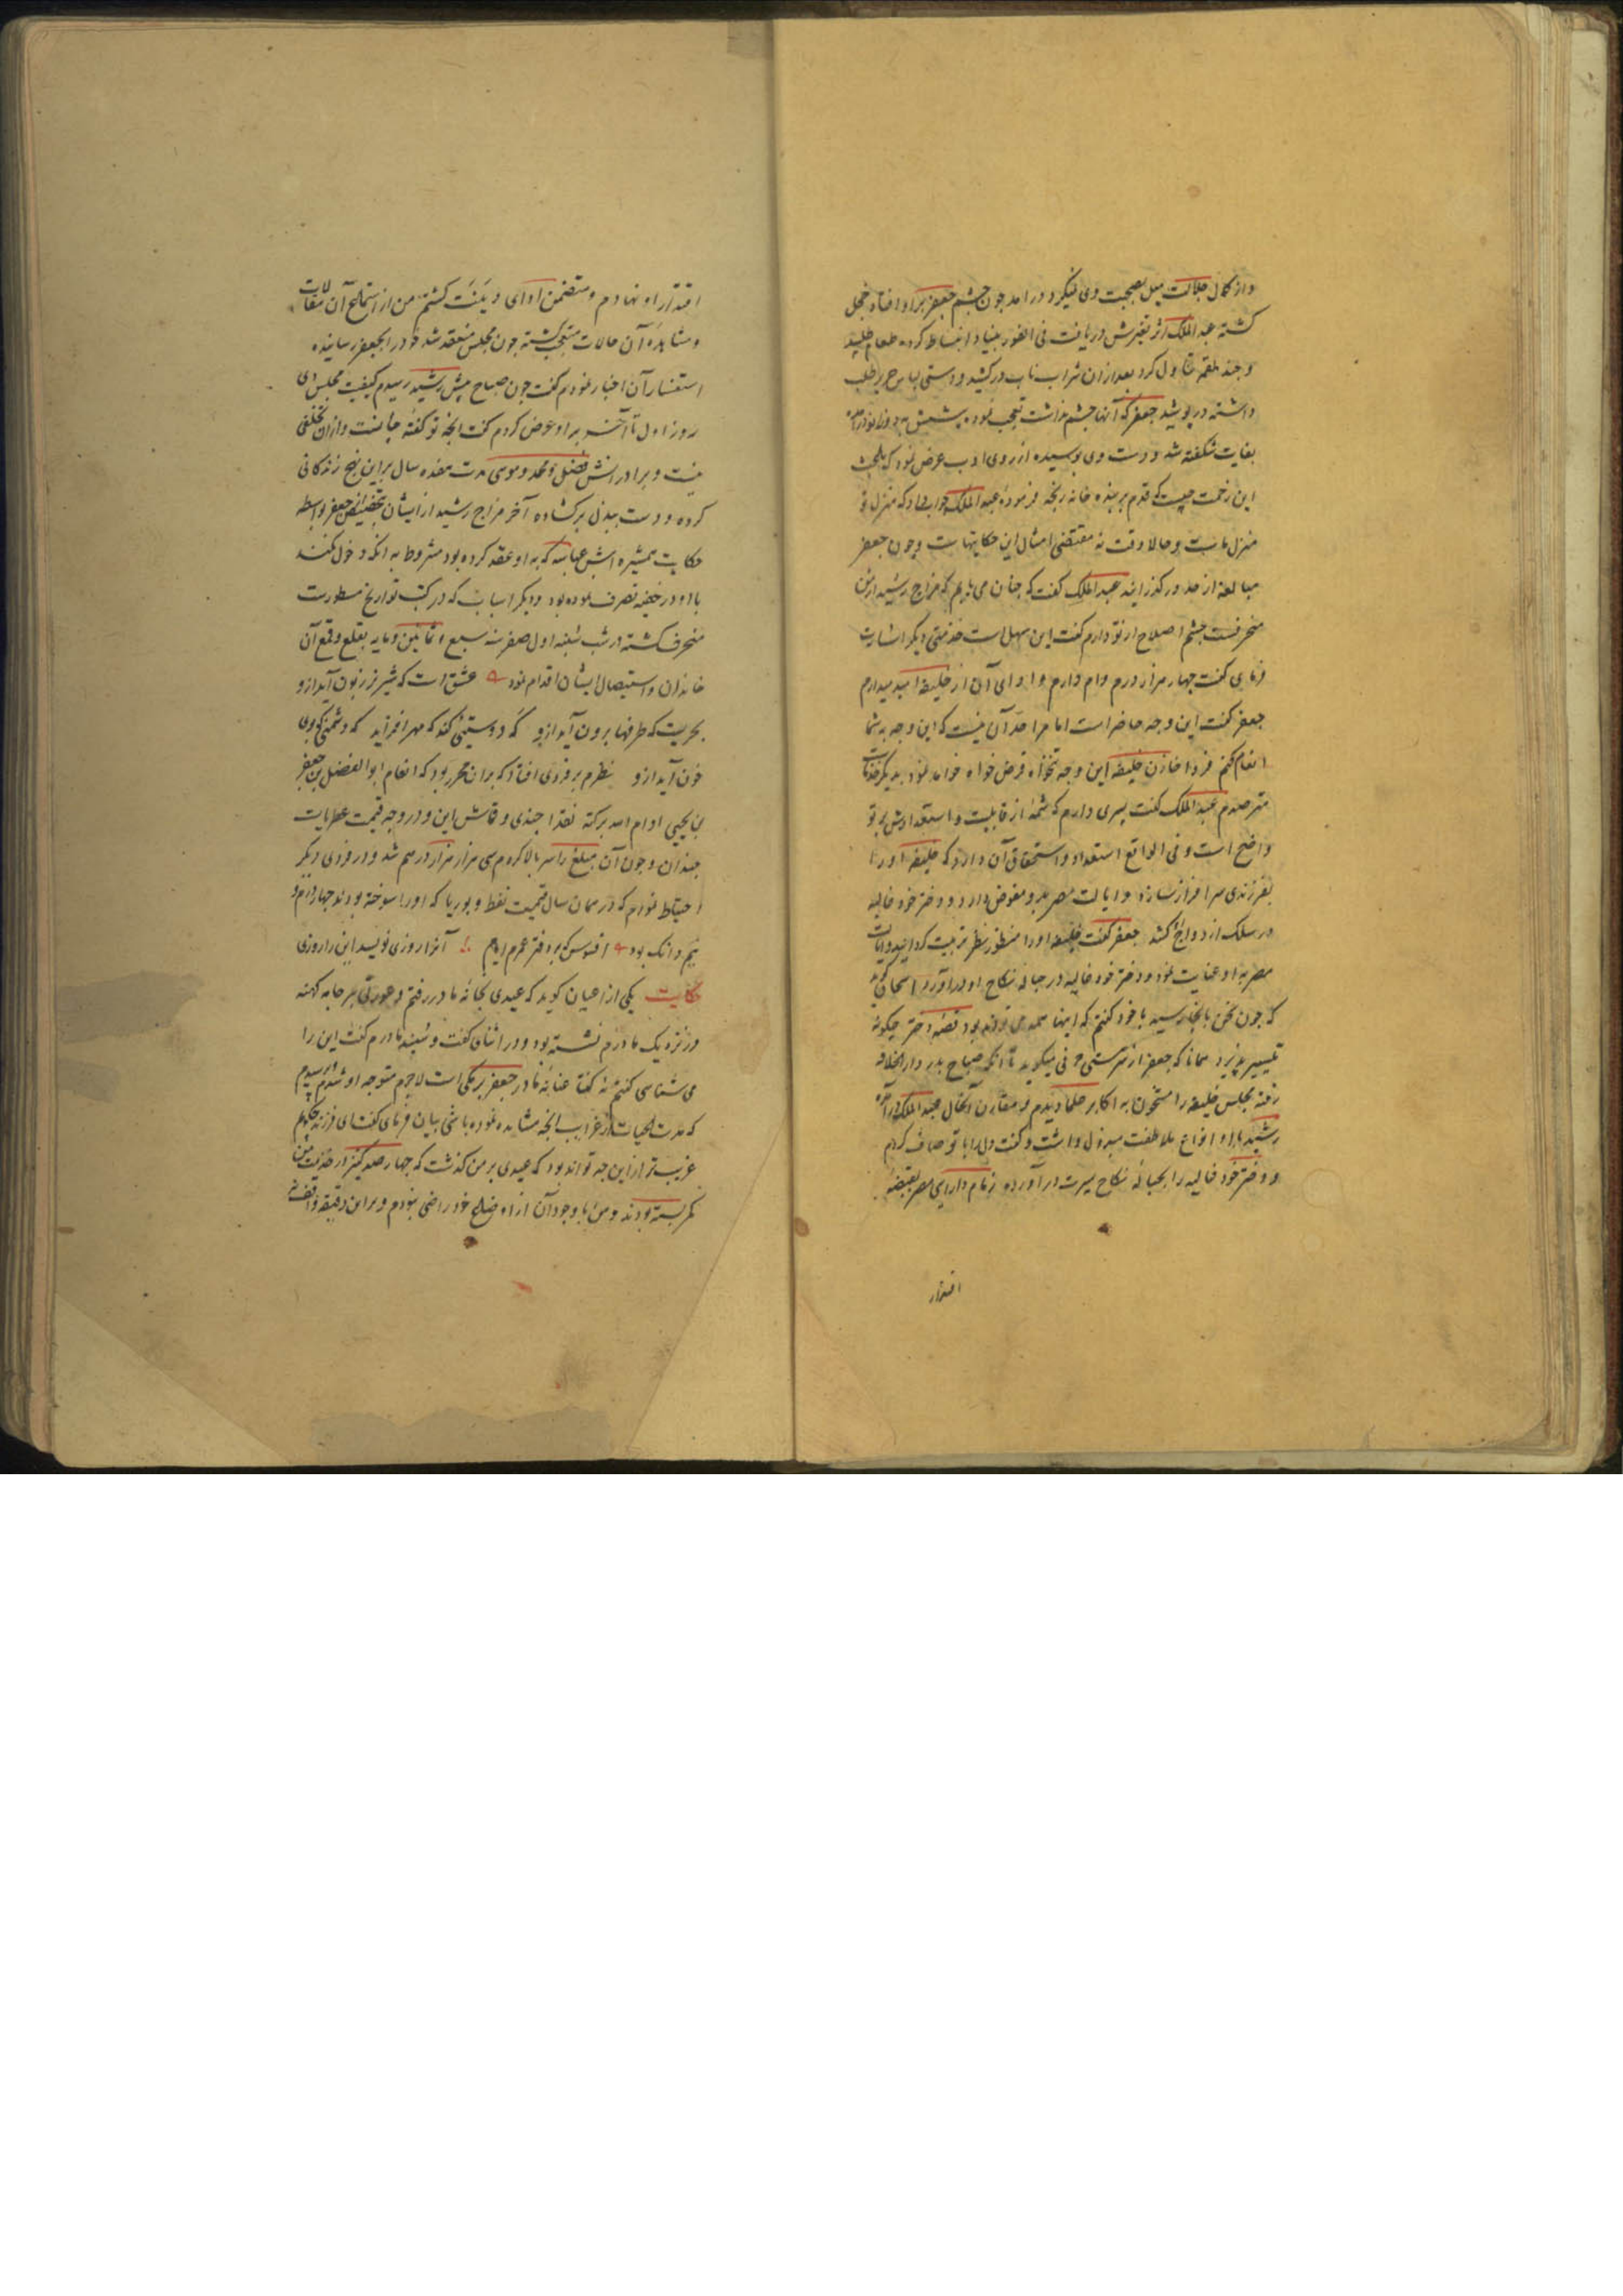 واز کمال جلالت میل بصحبت وی نمیکرد درامد چون چشم جعفر براو افتاد خجل
کشته عبد الملک اثر تغیرش دریافت فی الفور بنیاد انبساط کرده طعام طلبید
وچند لقمه تناول کرد بعدازان شراب ناب درکشید ودستی لباس حریر طلب
داشته درپوشید جعفر که آنها چشم نداشت تعجب نموده پیشش بدو زانو درآمده
بغایت شکفته شد ودست وی بوسیده از روی ادب عرض نمود که باعث
این زحمت چیست که قدم بربنده خانه رنجه فرموده عبد الملک جواب داد که منزل تو
منزل ماست وحالا وقت نه مقتضی امثال این حکایتهاست وچون جعفر
مبالغه از حد درکذرانید عبد الملک کفت که چنان می یابم که مزاج رشید ازمن
منحرفست چشم اصلاح ازتو دارم کفت این سهل است خدمتی دیکر اشارت
فرمای کفت چهار هزار درم وام دارم وادای آن از خلیفه امید میدارم
جعفر کفت این وجه حاضر است اما مرا حد آن نیست که این وجه به شما
انعام کنم فردا خازن خلیفه این وجه بتنخواه قرض خواه خواهد نمود بدیکر خدمات
مترصدم عبد الملک کفت پسری دارم که شمه از قابلیت واستعدادش برتو
واضح است وفی الواقع استعداد واستحقاق آن دارد که خلیفه اورا
بفرزندی سرافراز سازد وایالت مصر بدو مفوض دارد ودختر خود عالیه
درسلک ازدواج کشد جعفر کفت خلیفه اورا منظور نظر تربیت کردانید وایالت
مصر به او عنایت نمود ودختر خود عالیه درحباله نکاح او درآورد اسحاق کوید
که چون سخن بانجا رسید باخود کفتم که اینها همه می تواند بود قصه دختر چکونه
تیسیر پذیرد همانا که جعفر از سرمستی حرفی میکوید تا آنکه صباح بدر دار الخلافه
رفته مجلس خلیفه را مشحون به اکابر علما دیدم و مقارن آنحال عبد الملک درآمده
رشید با او انواع ملاطفت مبذول داشت وکفت دل را باتو صاف کردم
ودختر خود عالیه را بحباله نکاح پسرت درآورده زمام دارایی مصر بقبضه
اقتدار
اقتدار او نهادم ومتضمن ادای دینت کشتم من از استماع آن مقالات
ومشاهده آن حالات متعجب کشته چون مجلس منعقد شد خود را بجعفر رسانیده
استفسار آن اخبار نمودم کفت چون صباح پیش رشید رسیدم کیفیت مجلس دی
روز اول تا آخر براو عرض کردم کفت آنچه تو کفته جایست وازان تخلفی
نیست وبرادرانش فضل ومحمد وموسی مدت هفده سال براین نهج زندکانی
کرده ودست ببذل برکشاده آخر مزاج رشید ازایشان بتخصیص جعفر بواسطه
حکایت همشیره اش عباسه که به او عقد کرده بود مشروط به آنکه دخول نکند
با او درخفیه تصرف نموده بود ودیکر اسباب که درکتب تواریخ مسطورست
منحرف کشته درشب شنبه اول صفر سنه سبع وثمانین ومایه بقلع وقمع آن
خاندان واستیصال ایشان اقدام نمود عشق است که شیر نر زبون آید ازو
بحریست که طرفها برون آید ازو که دوستیی کند که مهر افزاید که دشمنی که بوی
خون آید ازو نظرم بر فردی افتاد که بران محرر بود که انعام ابو الفضل بن جعفر
بن یحیی ادام الله برکته نقدا چندی وقماش این ودر وجه قیمت عطریات
چندان وچون آن مبلغ را سر بالا کردم سی هزار هزار درهم شد ودر فردی دیکر
احتیاط نمودم که درهمان سال قیمت نفط وبوریا که اورا سوخته بودند چهار درم و
نیم دانک بود افسوس که بردفتر عمرم ایام آنرا روزی نویسد این را روزی
حکایت یکی از اعیان کوید که عیدی بخانه مادر رفتم وعورتی باجامه کهنه
درنزدیک مادرم نشسته بود ودر اثنای کفت وشنید مادرم کفت این را
می شناسی کفتم نه کفتا عتابه مادر جعفر برمکی است لاجرم متوجه او شدم پرسیدم
که مدت الحیات ازغرایب آنچه مشاهده نموده باشی بیان فرمای کفت ای فرزند چکویم
غریب تر ازاین چه تواند بود که عیدی برمن کذشت که چهار صد کنیز درخدمت من
کمر بسته بودند ومن باوجود آن از اوضاع خود راضی نبودم وبراین دقیقه واقف